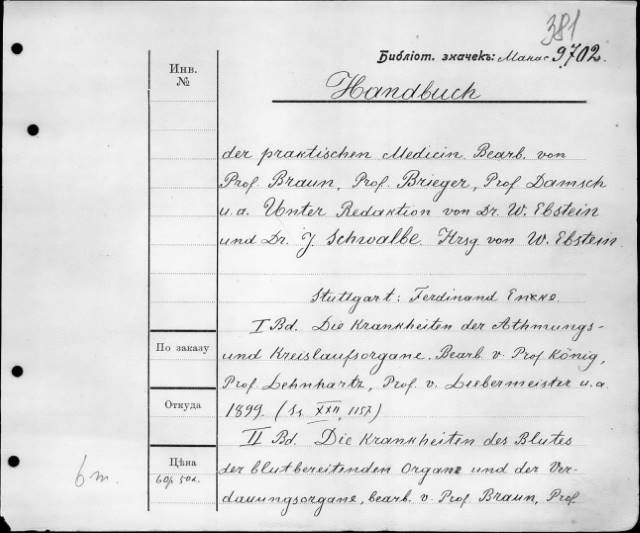 381
Библіот. значекъ: Манас 9702.
Инв.
№
Handbuch
der praktischen Medicin. Bearb. von
Prof. Braun, Prof. Brieger, Prof. Damsch
u. a. Unter Redaktion von Dr. W. Ebstein
und Dr. J. Schwalbe. Hrsg von W. Ebstein.
Stuttgart: Ferdinand Encke.
I Bd. Die Krankheiten der Athmungs-
und Kreislaufsorgane. Bearb. v. Prof König,
По заказу
Prof. Lehnhartz, Prof. v. Liebermeister u. a.
Откуда
1899. (Ss. XXII, 1157)
II Bd. Die Krankheiten des Blutes
Цѣна
der blutbereitenden Organe und der Ver-
6 m.
dauungsorgane, bearb. v. Prof. Braun, Prof.